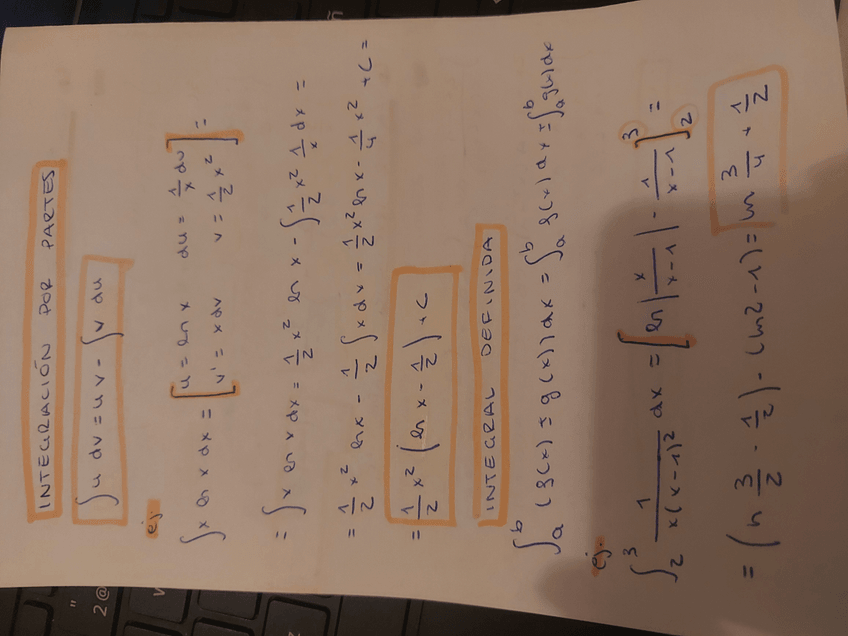 INTEGRACIÓN POR PARTES
∫u dv = uv - ∫v du
ej.
∫x ln x dx = [u = ln x du = 1/x dv v' = x dv v = 1/2 x²] =
= ∫x ln x dx = 1/2 x² ln x - ∫1/2 x² 1/x dx =
= 1/2 x² ln x - 1/2 ∫x dx = 1/2 x² ln x - 1/4 x² + C =
= 1/2 x² (ln x - 1/2) + C
INTEGRAL DEFINIDA
∫ₐᵇ (f(x) ± g(x)) dx = ∫ₐᵇ f(x) dx ± ∫ₐᵇ g(x) dx
ej.
∫₂³ 1/x(x-1)² dx = [ln|x/x-1| - 1/x-1]₂³ =
= (ln 3/2 - 1/2) - (ln2 - 1) = ln 3/4 + 1/2
"
2@